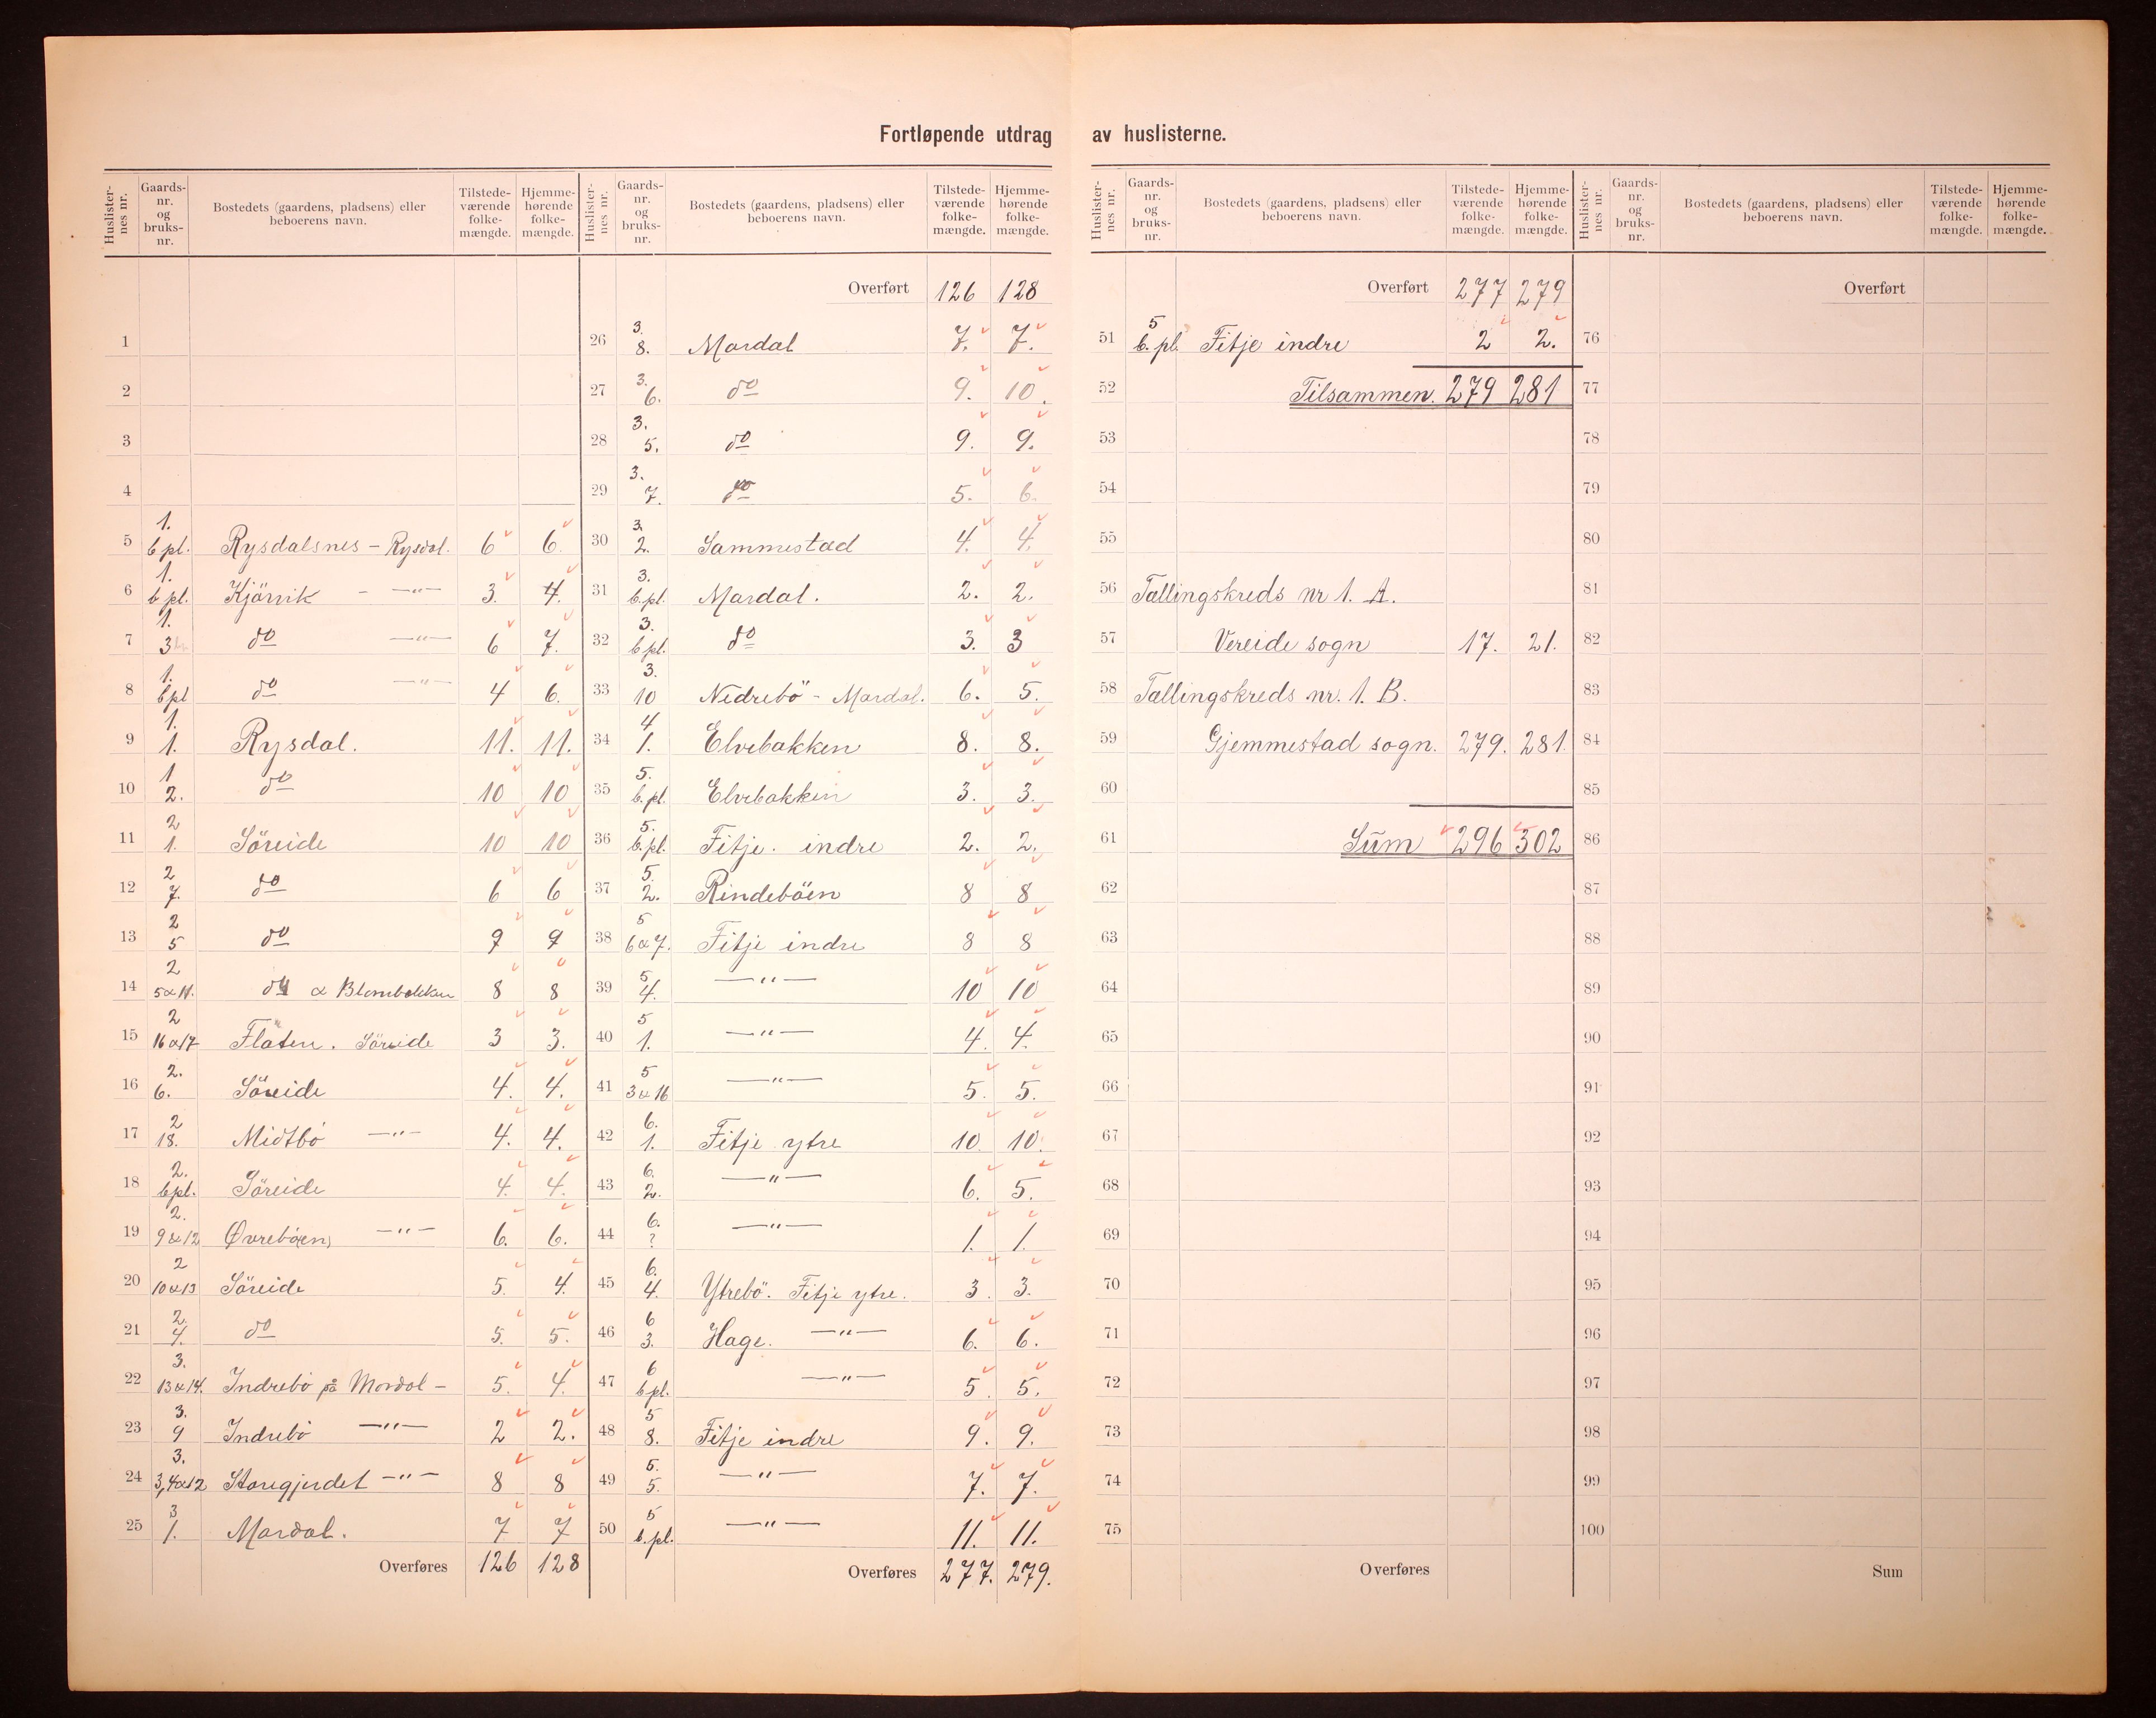 Fortløpende utdrag av huslisterne.
Huslisternes nr. Gaardsnr. og bruksnr. Bostedets (gaardens, pladsens) eller beboerens navn. Tilstedeværende folkemængde. Hjemmehørende folkemængde.
1
2
3
4
5 1. b pl. Rysdalsnes - Rysdal. 6 6.
6 1. b pl. Kjörvik - -"- 3. 4.
7 1. 3 do -"- 6 7.
8 1. b pl do -"- 4 6.
9 1. 1. Rysdal. 11. 11.
10 1 2. do 10 10
11 2 1. Söreide 10 10
12 2 7. do 6 6
13 2 5 do 9 9
14 2 5 & 11. do & Blombakken 8 8
15 2 16 & 17 Flaten. Söreide 3 3.
16 2. 6. Söreide 4. 4.
17 2 18. Midtbö -"- 4. 4.
18 2. b pl. Söreide 4. 4.
19 2. 9 & 12 Øvreböen, -"- 6. 6.
20 2 10 & 13 Söreide 5. 4.
21 2. 4. do 5. 5.
22 3. 13 & 14. Indrebö på Mardal - 5. 4.
23 3. 9 Indrebö -"- 2 2.
24 3. 3, 4 & 12 Storegjerdet -"- 8 8
25 3 1. Mardal. 7 7
Overføres 126 128
Huslisternes nr. Gaardsnr. og bruksnr. Bostedets (gaardens, pladsens) eller beboerens navn. Tilstedeværende folkemængde. Hjemmehørende folkemængde.
Overført 126 128
26 3. 8. Mardal 7. 7.
27 3. 6. do 9. 10.
28 3. 5. do 9. 9.
29 3. 7. do 5. 6.
30 3. 2. Sammestad 4. 4.
31 3. b. pl. Mardal. 2. 2.
32 3. b pl. do 3. 3
33 3. 10 Nedrebö - Mardal. 6. 5.
34 4. 1. Elvebakken 8. 8.
35 5. b. pl. Elvebakken 3. 3.
36 5. b. pl. Fitje. indre 2. 2.
37 5. 2. Rindeböen 8 8
38 5 6 & 7. Fitje indre 8 8
39 5 4. -"- 10 10
40 5 1. -"- 4. 4.
41 5 3 & 16 -"- 5. 5.
42 6. 1. Fitje ytre 10. 10.
43 6. 2. -"- 6. 5.
44 6. ? -"- 1. 1.
45 6. 4. Ytrebö. Fitje ytre. 3. 3.
46 6 3. Hage. -"- 6. 6.
47 6 b pl. -"- 5. 5.
48 5 8. Fitje indre 9. 9.
49 5. 5. -"- 7. 7.
50 5 b. pl. -"- 11. 11.
Overføres 277. 279.
Huslisternes nr. Gaardsnr. og bruksnr. Bostedets (gaardens, pladsens) eller beboerens navn. Tilstedeværende folkemængde. Hjemmehørende folkemængde.
Overført 277 279
51 5 b. pl. Fitje indre 2 2.
52 Tilsammen. 279 281
53
54
55
56 Tællingskreds nr 1. A.
57 Vereide sogn 17. 21.
58 Tællingskreds nr. 1. B.
59 Gjemmestad sogn. 279. 281.
60
61 Sum 296 302
62
63
64
65
66
67
68
69
70
71
72
73
74
75
Overføres
Huslisternes nr. Gaardsnr. og bruksnr. Bostedets (gaardens, pladsens) eller beboerens navn. Tilstedeværende folkemængde. Hjemmehørende folkemængde.
Overført
76
77
78
79
80
81
82
83
84
85
86
87
88
89
90
91
92
93
94
95
96
97
98
99
100
Sum